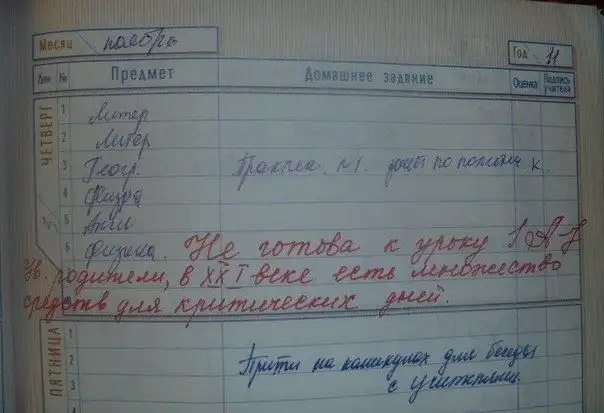 Месяц ноябрь Год 11
Дни № Предмет Домашнее задание Оценка Подпись учителя
ЧЕТВЕРГ 3
1 Литер
2 Литер
3 Геогр. Практич. №1. по
4 Физра
5 Англ
6 Физика. Не готова к уроку
Ув. родители, в XXI веке есть множество
средств для критических дней.
ПЯТНИЦА
1
2 Прийти на каникулах для беседы
3 с учителями.
4